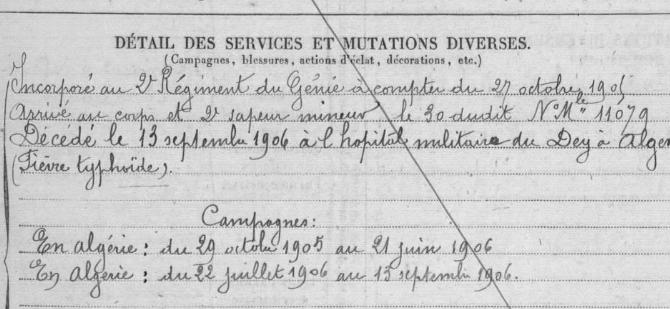 DÉTAIL DES SERVICES ET MUTATIONS DIVERSES.
(Campagnes, blessures, actions d'éclat, décorations, etc.)
Incorporé au 2e Régiment du Génie à compter du 27 octobre 1905
Arrivé au corps et 2e sapeur mineur le 30 dudit No Mle 11079
Décédé le 13 septembre 1906 à l'hopital militaire du Dey à Alger
(Fièvre typhoïde).
Campagnes:
En algérie : du 29 octobre 1905 au 21 juin 1906
En Algérie : du 22 juillet 1906 au 13 septembre 1906.